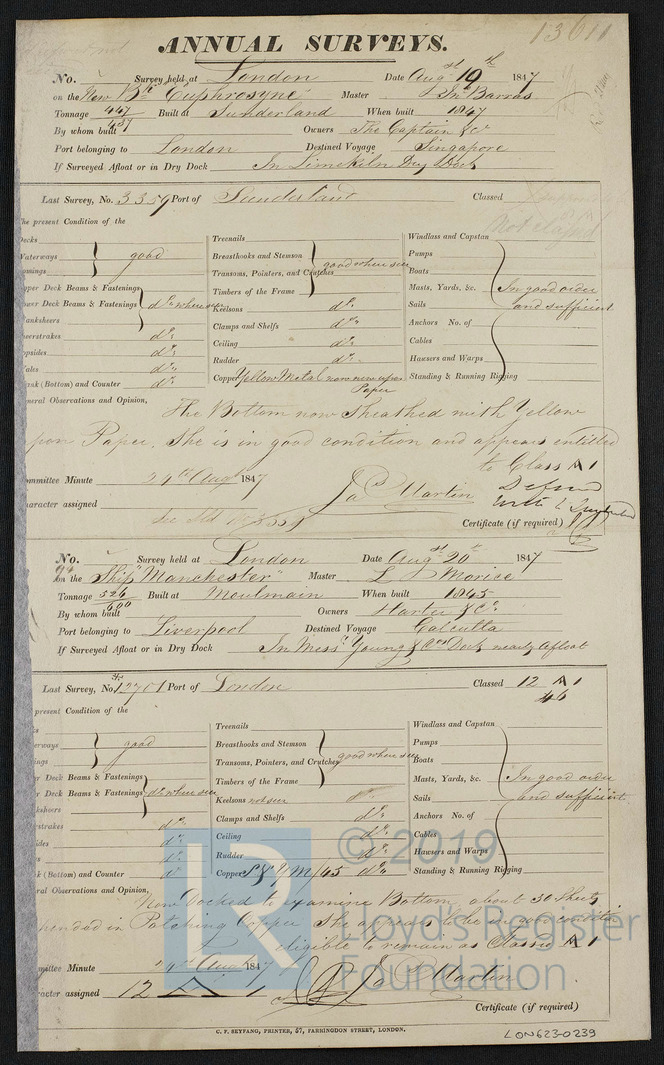 13611
ANNUAL SURVEYS.
No. Survey held at London Date Augst 19th 1847
on the New Bk "Euphrosyne" Master Jno Barras
Tonnage 447 Built at Sunderland When built 1847
457
By whom built Owners The Captain &c
Port belonging to London Destined Voyage Singapore
If Surveyed Afloat or in Dry Dock In Limekiln Dry Dock
Last Survey, No. 3359 Port of Sunderland Classed
Not classed
he present Condition of the
Decks
Waterways
mings
good
pper Deck Beams & Fastenings
ower Deck Beams & Fastenings
lanksheers
do where seen
heerstrakes do
opsides do
ales do
ank (Bottom) and Counter do
Treenails
Breasthooks and Stemson
Transoms, Pointers, and Crutches
Timbers of the Frame
good where seen
Keelsons do
Clamps and Shelfs do
Ceiling do
Rudder do
Copper Yellow Metal now new upon
Paper
Windlass and Capstan
Pumps
Boats
Masts, Yards, &c.
Sails
Anchors No. of
Cables
Hawsers and Warps
Standing & Running Rigging
In good order
and sufficient
neral Observations and Opinion,
The Bottom now Sheathed with Yellow
upon Paper. She is in good condition and appears entitled
to Class A 1
ommittee Minute 24th Augt 1847
Jas Martin
haracter assigned
Certificate (if required)
No. Survey held at London Date Augst 20th 1847
on the Ship "Manchester" Master L Morice
Tonnage 526 Built at Moulmain When built 1845
600
By whom built Owners Harter & Co
Port belonging to Liverpool Destined Voyage Calcutta
If Surveyed Afloat or in Dry Dock In Messrs Young & Cos Dock nearly afloat
Last Survey, No. 12701 Port of London Classed 12 A 1
46
present Condition of the
erways
ings
good
r Deck Beams & Fastenings
r Deck Beams & Fastenings
ksheers
do where seen
strakes do
ides do
s do
k (Bottom) and Counter do
Treenails
Breasthooks and Stemson
Transoms, Pointers, and Crutches
Timbers of the Frame
good where seen
Keelsons not seen
Clamps and Shelfs do
Ceiling do
Rudder do
Copper YM/45 do
Windlass and Capstan
Pumps
Boats
Masts, Yards, &c.
Sails
Anchors No. of
Cables
Hawsers and Warps
Standing & Running Rigging
In good order
and sufficient.
ral Observations and Opinion,
Now Docked to examine Bottom, about 30 Sheets
pended in Patching Copper She appears to be in good condition
& eligible to remain as Classed A 1
mittee Minute 24th Augt 1847
J P Martin
racter assigned 12 A 1
Certificate (if required)
C. F. SEYFANG, PRINTER, 57, FARRINGDON STREET, LONDON.
LON623-0239
LR
© 2019
Lloyd's Register
Foundation